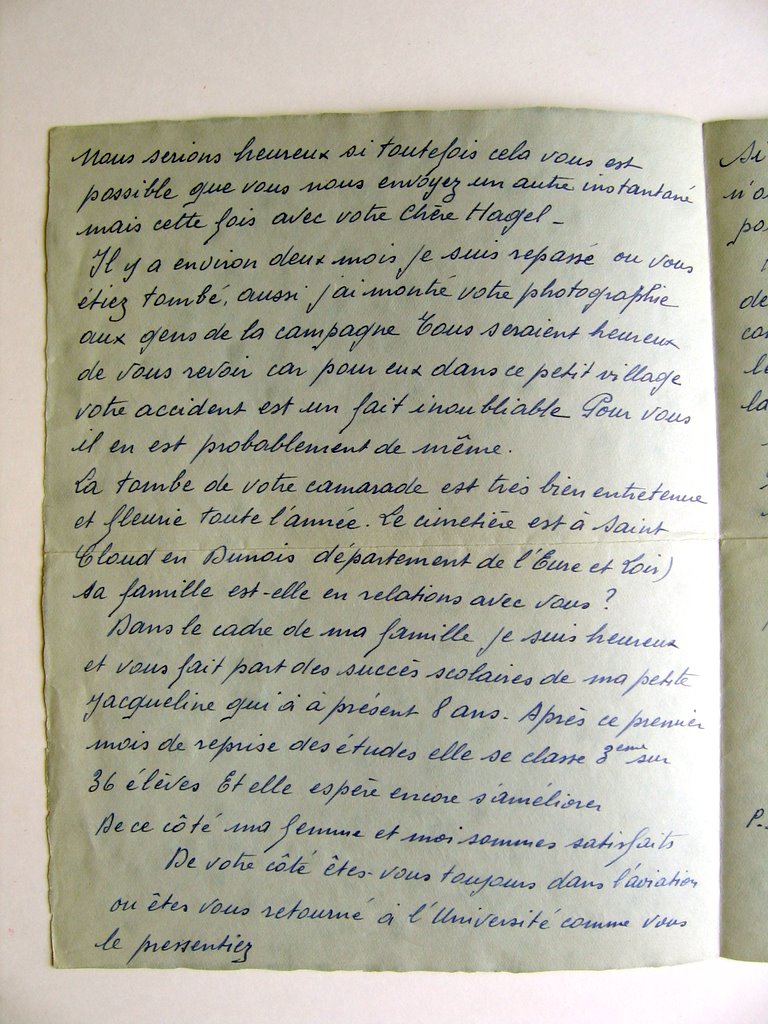 Nous serions heureux si toutefois cela vous est
possible que vous nous envoyez un autre instantané
mais cette fois avec votre Chère Hagel -
Il y a environ deux mois je suis repassé ou vous
étiez tombé, aussi j'ai montré votre photographie
aux gens de la campagne Tous seraient heureux
de vous revoir car pour eux dans ce petit village
votre accident est un fait inoubliable Pour vous
il en est probablement de même.
La tombe de votre camarade est très bien entretenue
et fleurie toute l'année. Le cimetière est à Saint
Cloud en Dunois département de l'Eure et Loir)
sa famille est-elle en relations avec vous ?
Dans le cadre de ma famille je suis heureux
et vous fait part des succès scolaires de ma petite
Jacqueline qui à à présent 8 ans. Après ce premier
mois de reprise des études elle se classe 3ème sur
36 élèves Et elle espère encore s'améliorer
De ce côté ma femme et moi sommes satisfaits
De votre côté êtes-vous toujours dans l'aviation
ou êtes vous retourné à l'Université comme vous
le pressentiez
Si
n'o
po
de
le
la
P.